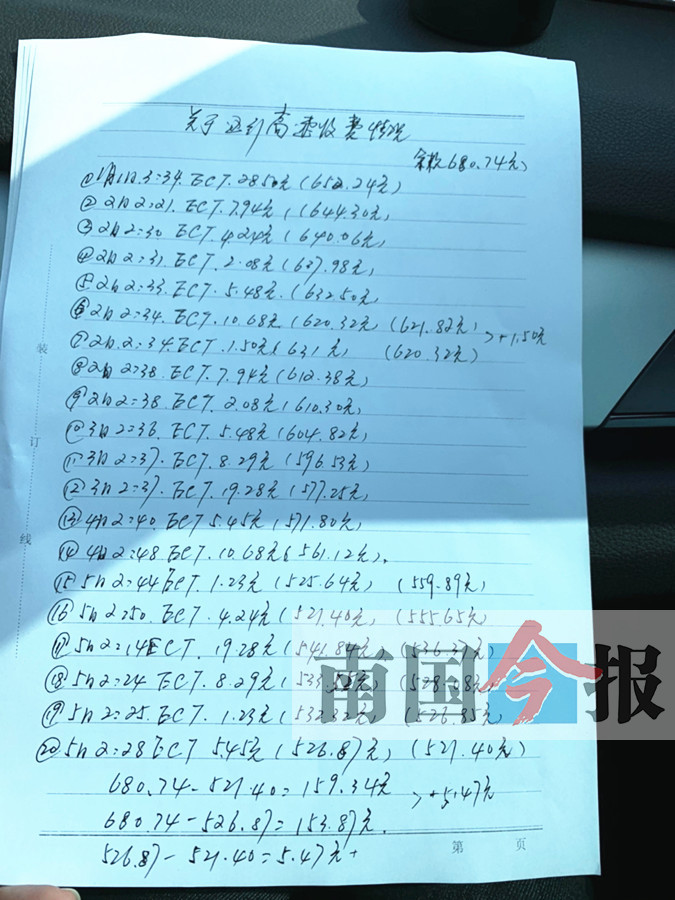 关于运行高速收费情况
余款680.74元
①1月1日.3:34.ECT.28.50元(652.24元)
②2日2:21.ECT.7.94元,(644.30元)
③2日2:30.ECT.4.24元(640.06元)
④2日2:31.ECT.2.08元(637.98元)
⑤2日2:33.ECT.5.48元.(632.50元)
⑥2日2:34.ECT.10.68元(620.32元) (621.82元) >+1.50元
⑦2日.2:34.ECT.1.50元(631元) (620.32元)
⑧2日2:38.ECT.7.94元(612.38元)
⑨2日2:38.ECT.2.08元(610.30元)
⑩3日2:36.ECT.5.48元(604.82元)
⑪3日2:37.ECT.8.29元(596.53元)
⑫3日2:37.ECT.19.28元(577.25元)
⑬4日2:40.ECT.5.45元(571.80元)
⑭4日2:48ECT.10.68元(561.12元).
⑮5日2:44ECT.1.23元(525.64元) (559.89元)
⑯5日2:50.ECT.4.24元(521.40元) (555.65元)
⑰5日2:14ECT.19.28元(541.84元) (536.37元)
⑱5日2:24.ECT.8.29元(533.55元) (528.08元)
⑲5日2:25.ECT.1.23元(532.32元) (526.85元)
⑳5日2:28ECT 5.45元(526.87元) (521.40元)
680.74-521.40=159.34元 >+5.47元
680.74-526.87=153.87元.
526.87-521.40=5.47元+
装
订
线
第 页
南国今报